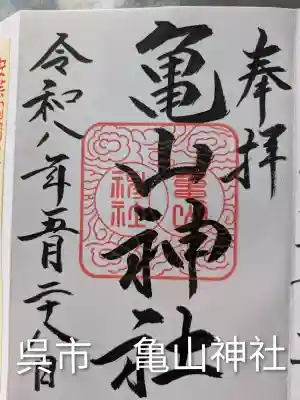 奉拝
亀山神社
亀山神社
令和八年五月二十八日
呉市 亀山神社